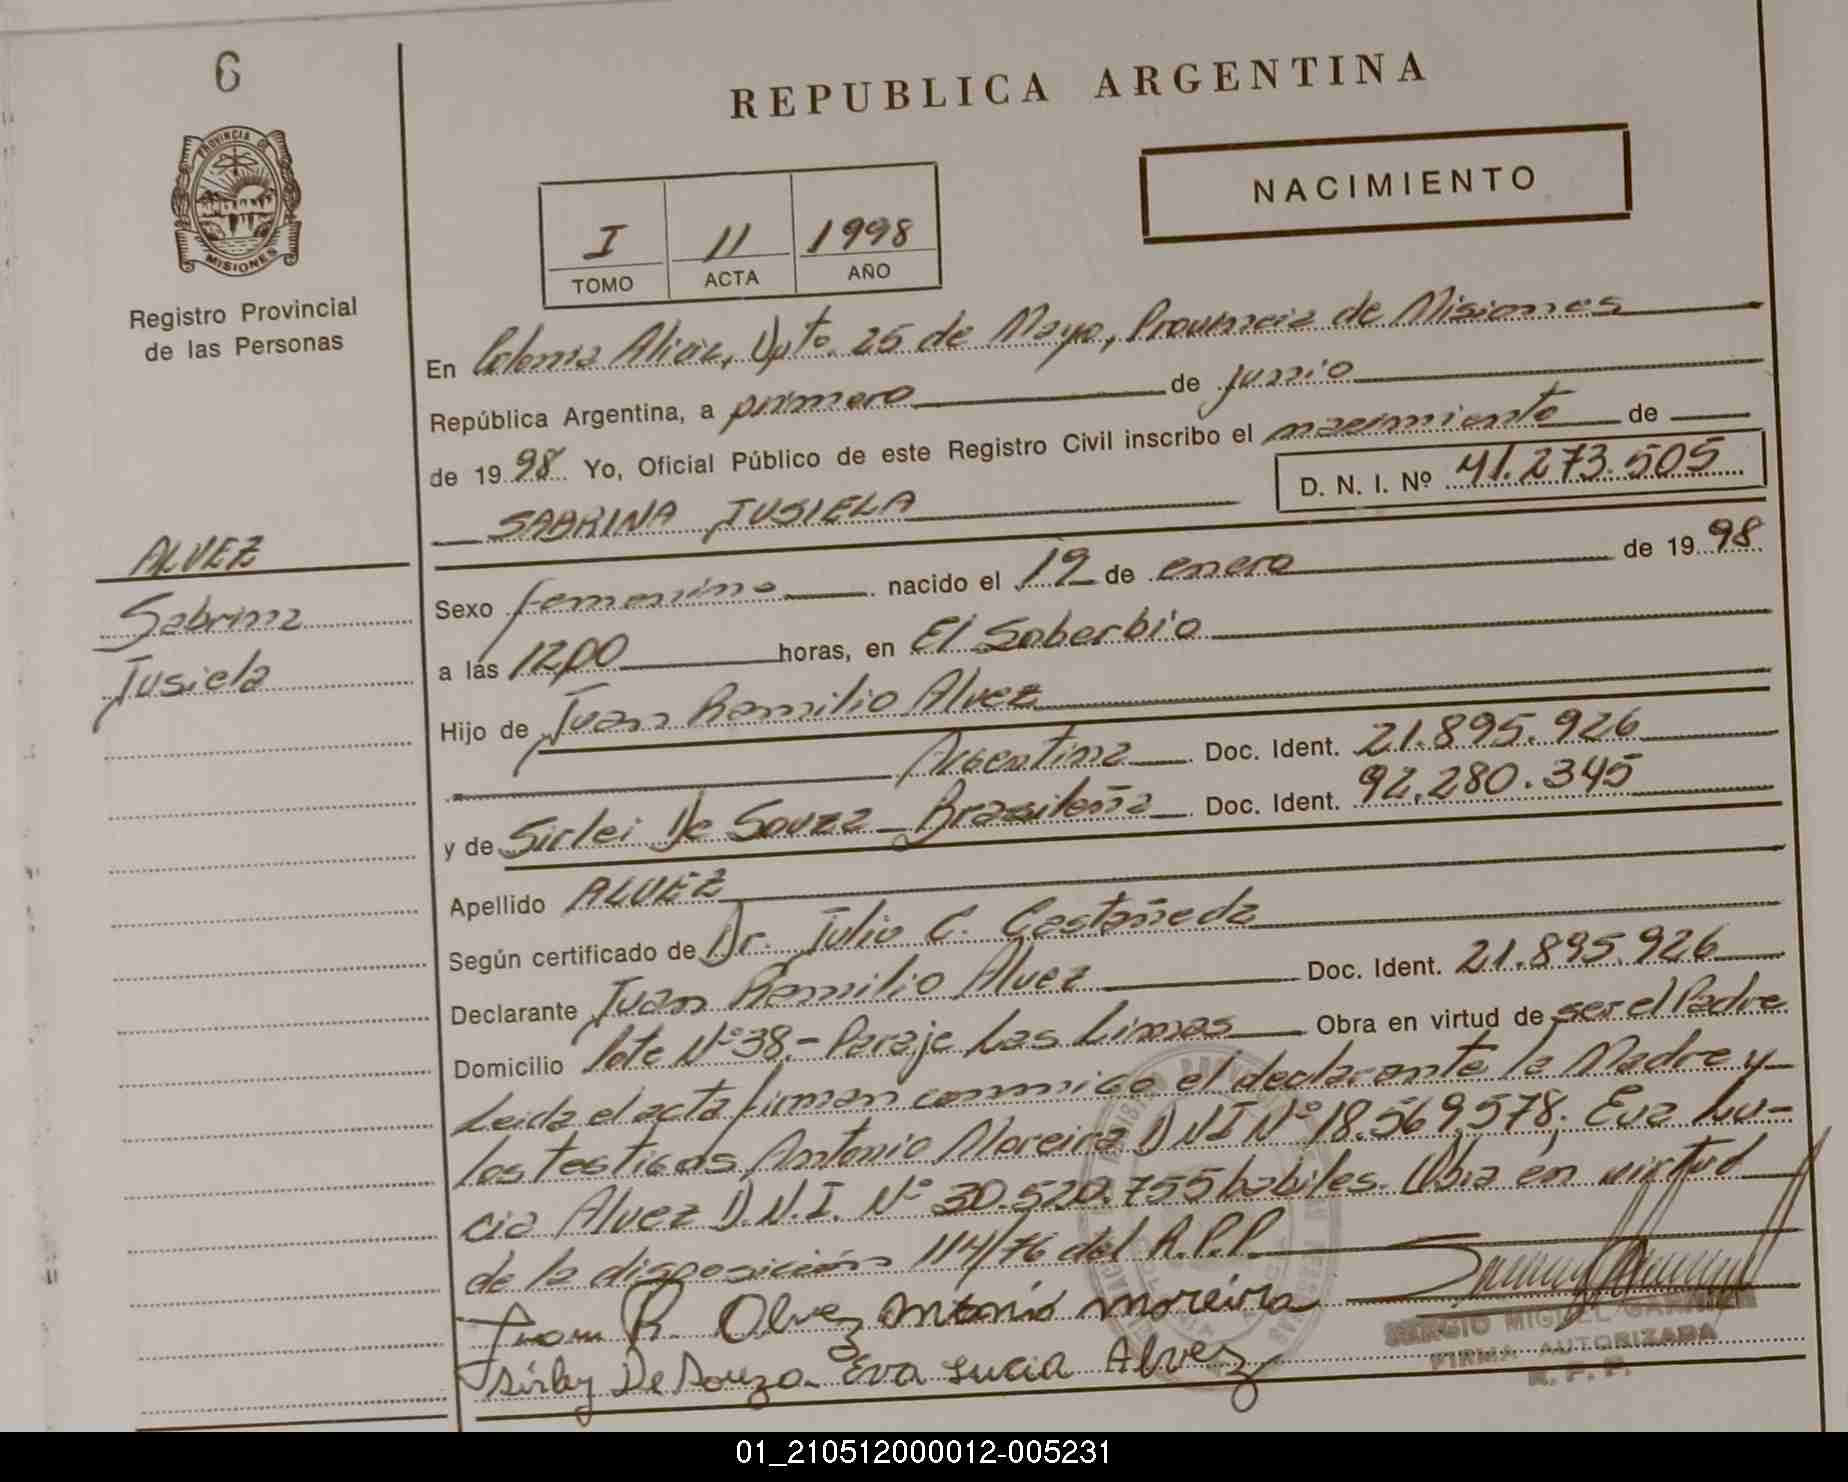 6
PROVINCIA DE
MISIONES
Registro Provincial
de las Personas
REPUBLICA ARGENTINA
NACIMIENTO
I 11 1998
TOMO ACTA AÑO
En Colonia Alicia, Dpto. 25 de Mayo, Provincia de Misiones
República Argentina, a primero de junio
de 1998 Yo, Oficial Público de este Registro Civil inscribo el nacimiento de
D. N. I. Nº 41.273.505
SABRINA JUSIELA
ALVEZ
Sabrina
Jusiela
Sexo femenino nacido el 19 de enero de 1998
a las 12,00 horas, en El Soberbio
Hijo de Juan Ramilio Alvez
Argentina Doc. Ident. 21.895.926
y de Sirlei De Souza Brasileña Doc. Ident. 92.280.345
Apellido ALVEZ
Según certificado de Dr. Julio C. Castañeda
Declarante Juan Ramilio Alvez Doc. Ident. 21.895.926
Domicilio lote Nº 38.- Paraje Las Limas Obra en virtud de ser el Padre
Leida el acta firman conmigo el declarante la Madre y
los testigos Antonio Moreira DNI Nº 18.569.578; Eva Lu-
cia Alvez D.N.I. Nº 30.520.755 habiles. Obra en virtud
de la disposición 114/76 del R.P.P.
Juan R. Olvez Antonio moreira
Sirley De Souza Eva Lucia Alvez
SERGIO MIGUEL
FIRMA AUTORIZADA
R. P. P.
01_210512000012-005231